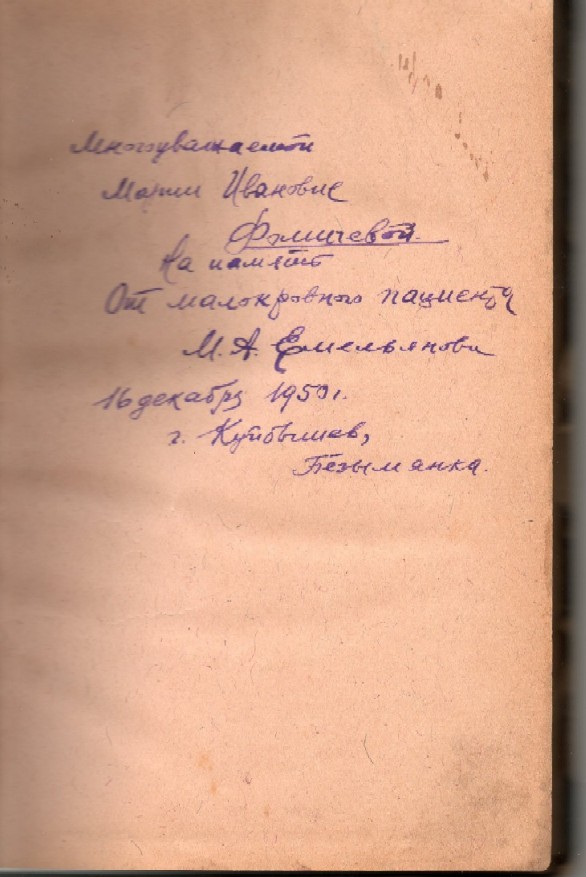 Многоуважаемой
Марии Ивановне
Фомичевой.
На память
От малокровного пациента
М. А. Емельянова
16 декабря 1950 г.
г. Куйбышев,
Безымянка.